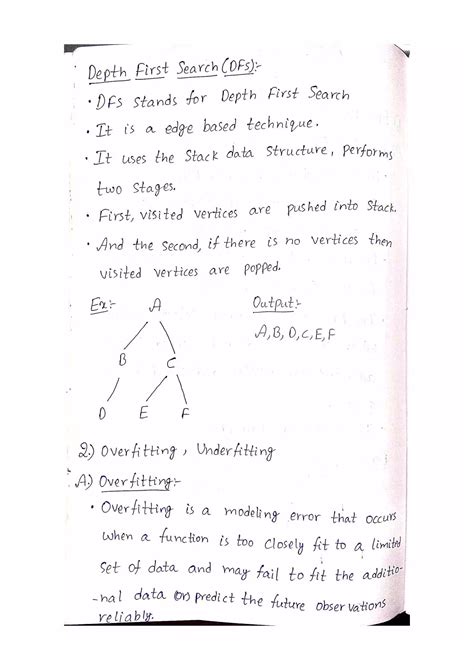 Depth First Search (DFS):-
• DFS stands for Depth First Search
• It is a edge based technique.
• It uses the Stack data Structure, performs
two stages.
• First, visited vertices are pushed into Stack.
• And the second, if there is no vertices then
visited vertices are popped.
Ex:- A Output:-
A, B, D, C, E, F
B C
D E F
2) Overfitting, Underfitting
A) Overfitting:-
• Overfitting is a modeling error that occurs
when a function is too closely fit to a limited
set of data and may fail to fit the additio-
-nal data (or) predict the future observations
reliably.